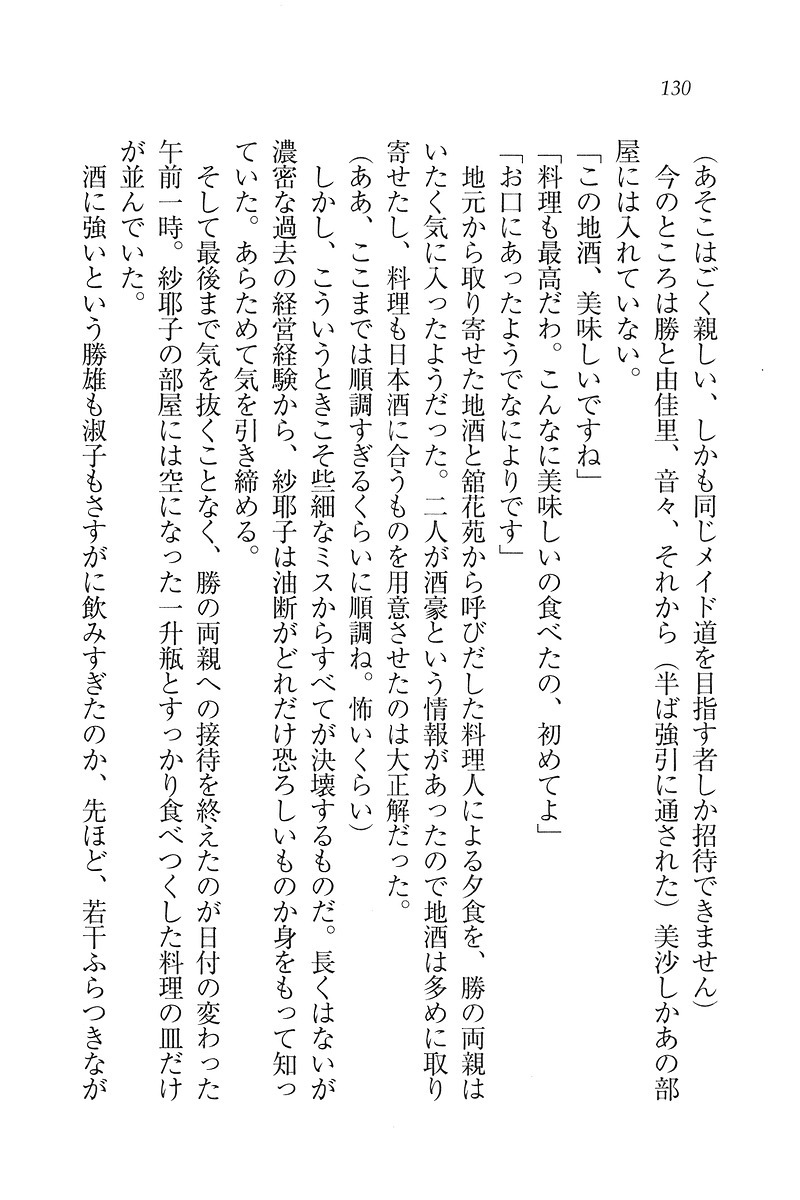 130
(あそこはごく親しい、しかも同じメイド道を目指す者しか招待できません)
　今のところは勝と由佳里、音々、それから(半ば強引に通された)美沙しかあの部
屋には入れていない。
「この地酒、美味しいですね」
「料理も最高だわ。こんなに美味しいの食べたの、初めてよ」
「お口にあったようでなによりです」
　地元から取り寄せた地酒と舘花苑から呼びだした料理人による夕食を、勝の両親は
いたく気に入ったようだった。二人が酒豪という情報があったので地酒は多めに取り
寄せたし、料理も日本酒に合うものを用意させたのは大正解だった。
(ああ、ここまでは順調すぎるくらいに順調ね。怖いくらい)
　しかし、こういうときこそ些細なミスからすべてが決壊するものだ。長くはないが
濃密な過去の経営経験から、紗耶子は油断がどれだけ恐ろしいものか身をもって知っ
ていた。あらためて気を引き締める。
　そして最後まで気を抜くことなく、勝の両親への接待を終えたのが日付の変わった
午前一時。紗耶子の部屋には空になった一升瓶とすっかり食べつくした料理の皿だけ
が並んでいた。
　酒に強いという勝雄も淑子もさすがに飲みすぎたのか、先ほど、若干ふらつきなが